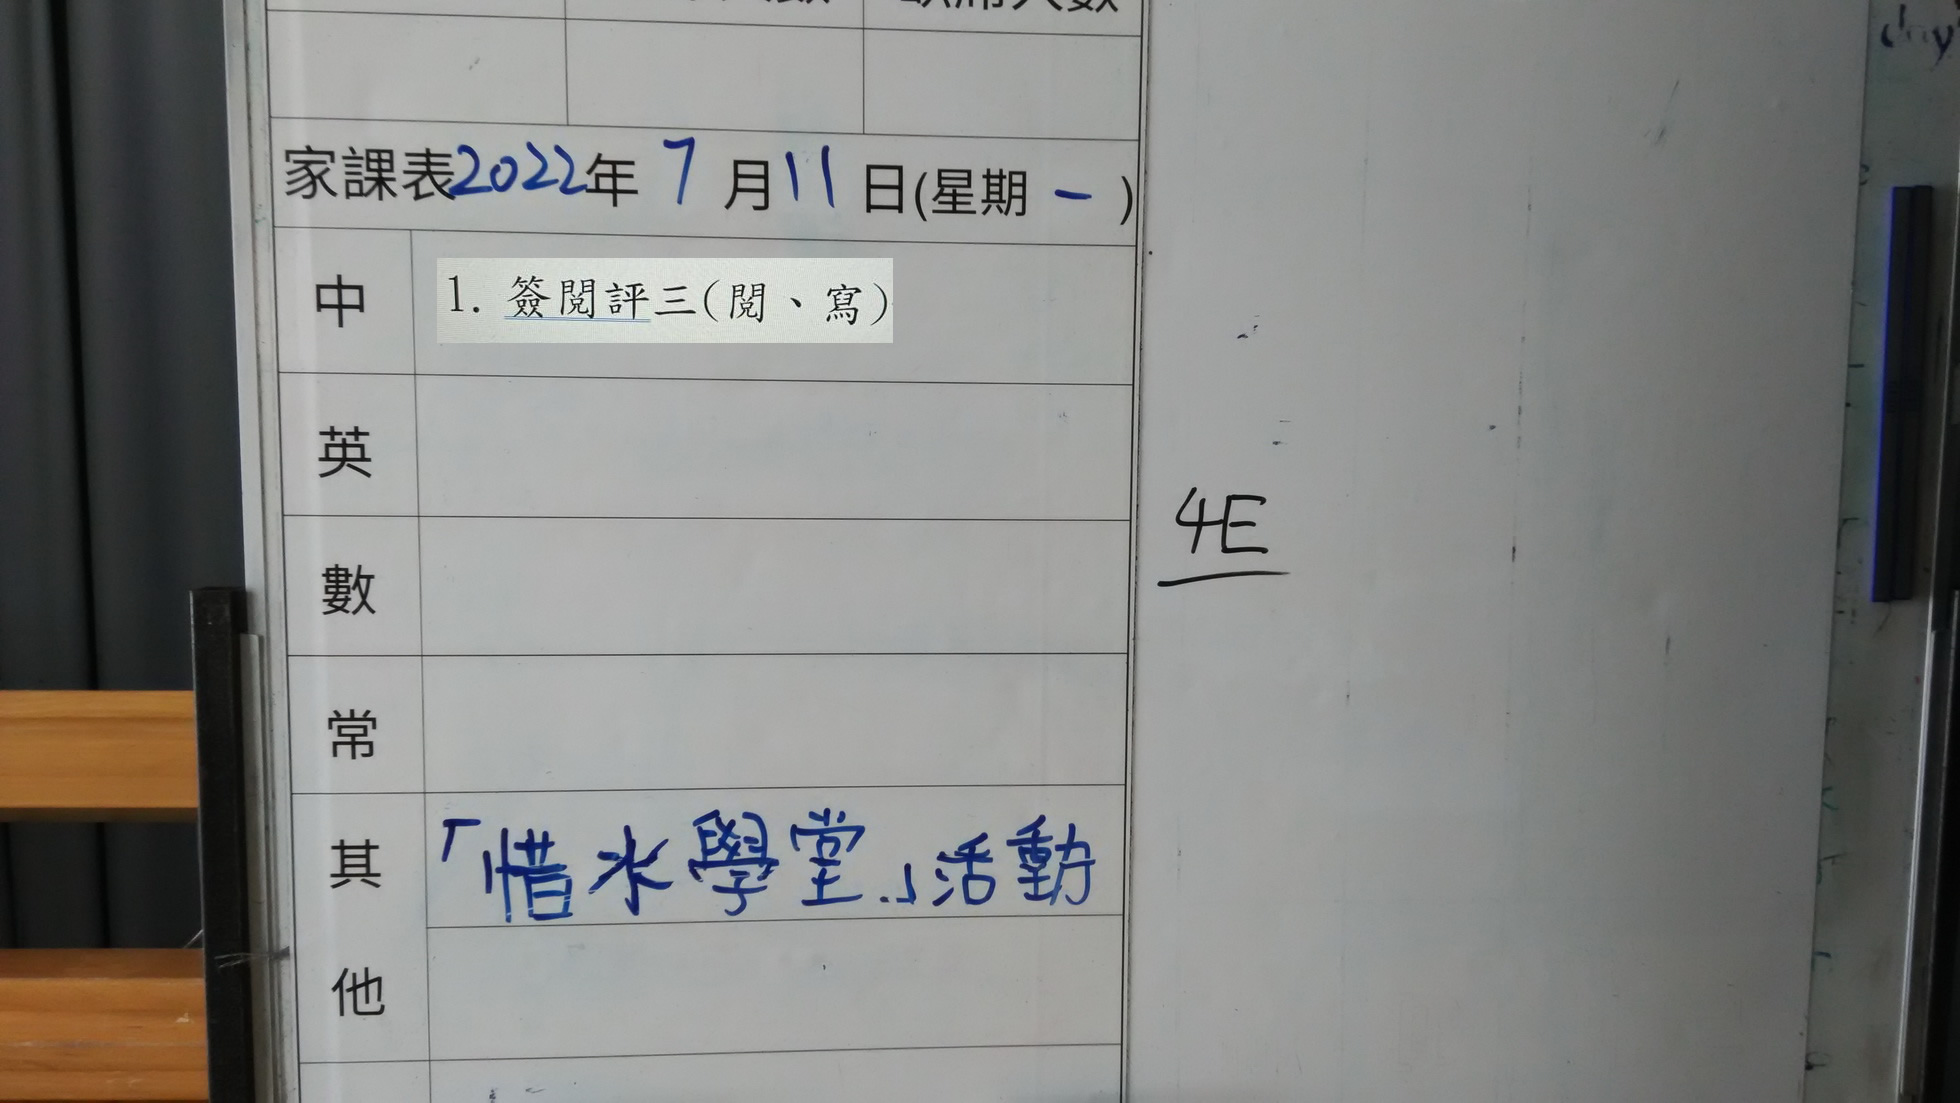 家課表2022年 7 月 11 日(星期 一 )
中
1. 簽閱評三(閱、寫)
英
數
4E
常
其他
「惜水學堂」活動
day